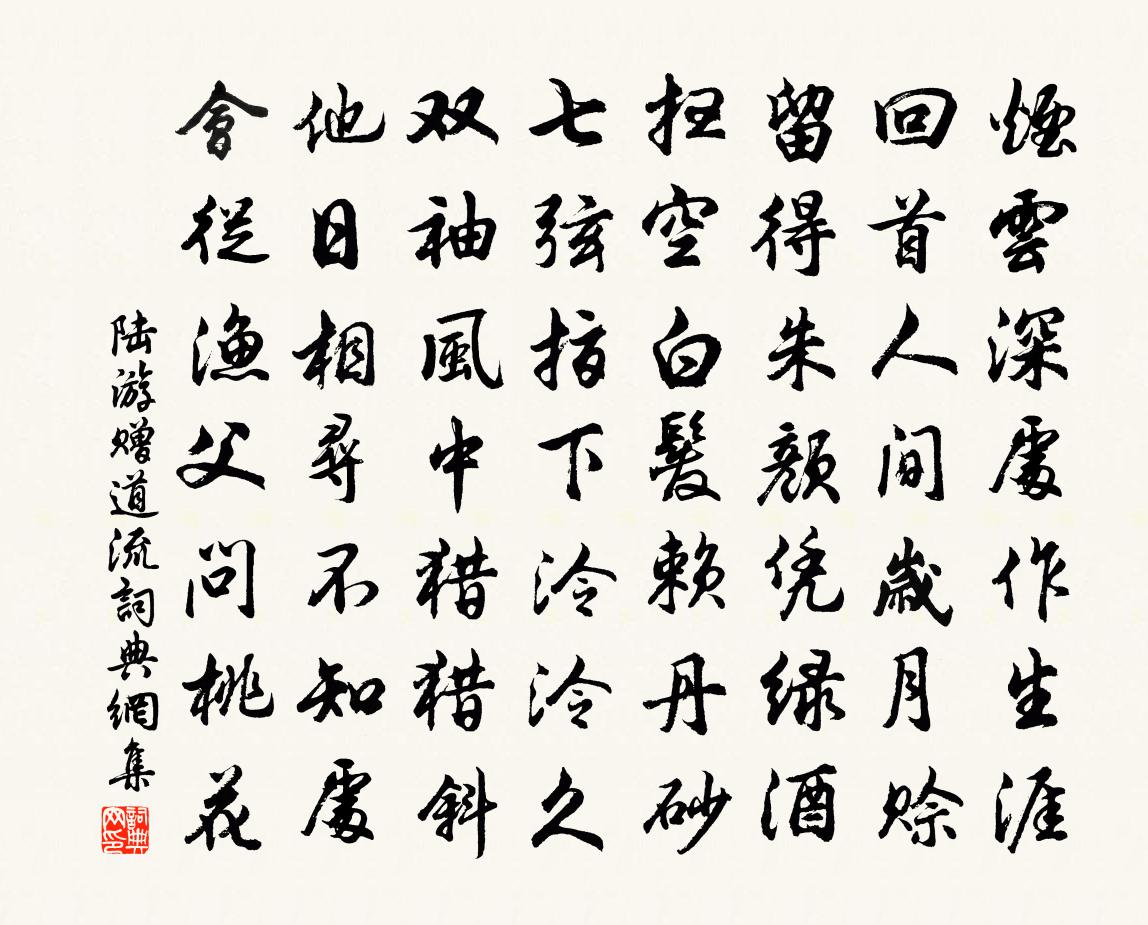 煙雲深處作生涯
回首人间歲月賒
留得朱颜凭緑酒
扫空白髮赖丹砂
七弦指下泠泠久
双袖風中猎猎斜
他日相尋不知處
會從漁父問桃花
陆游赠道流詞典網集
詞典网印